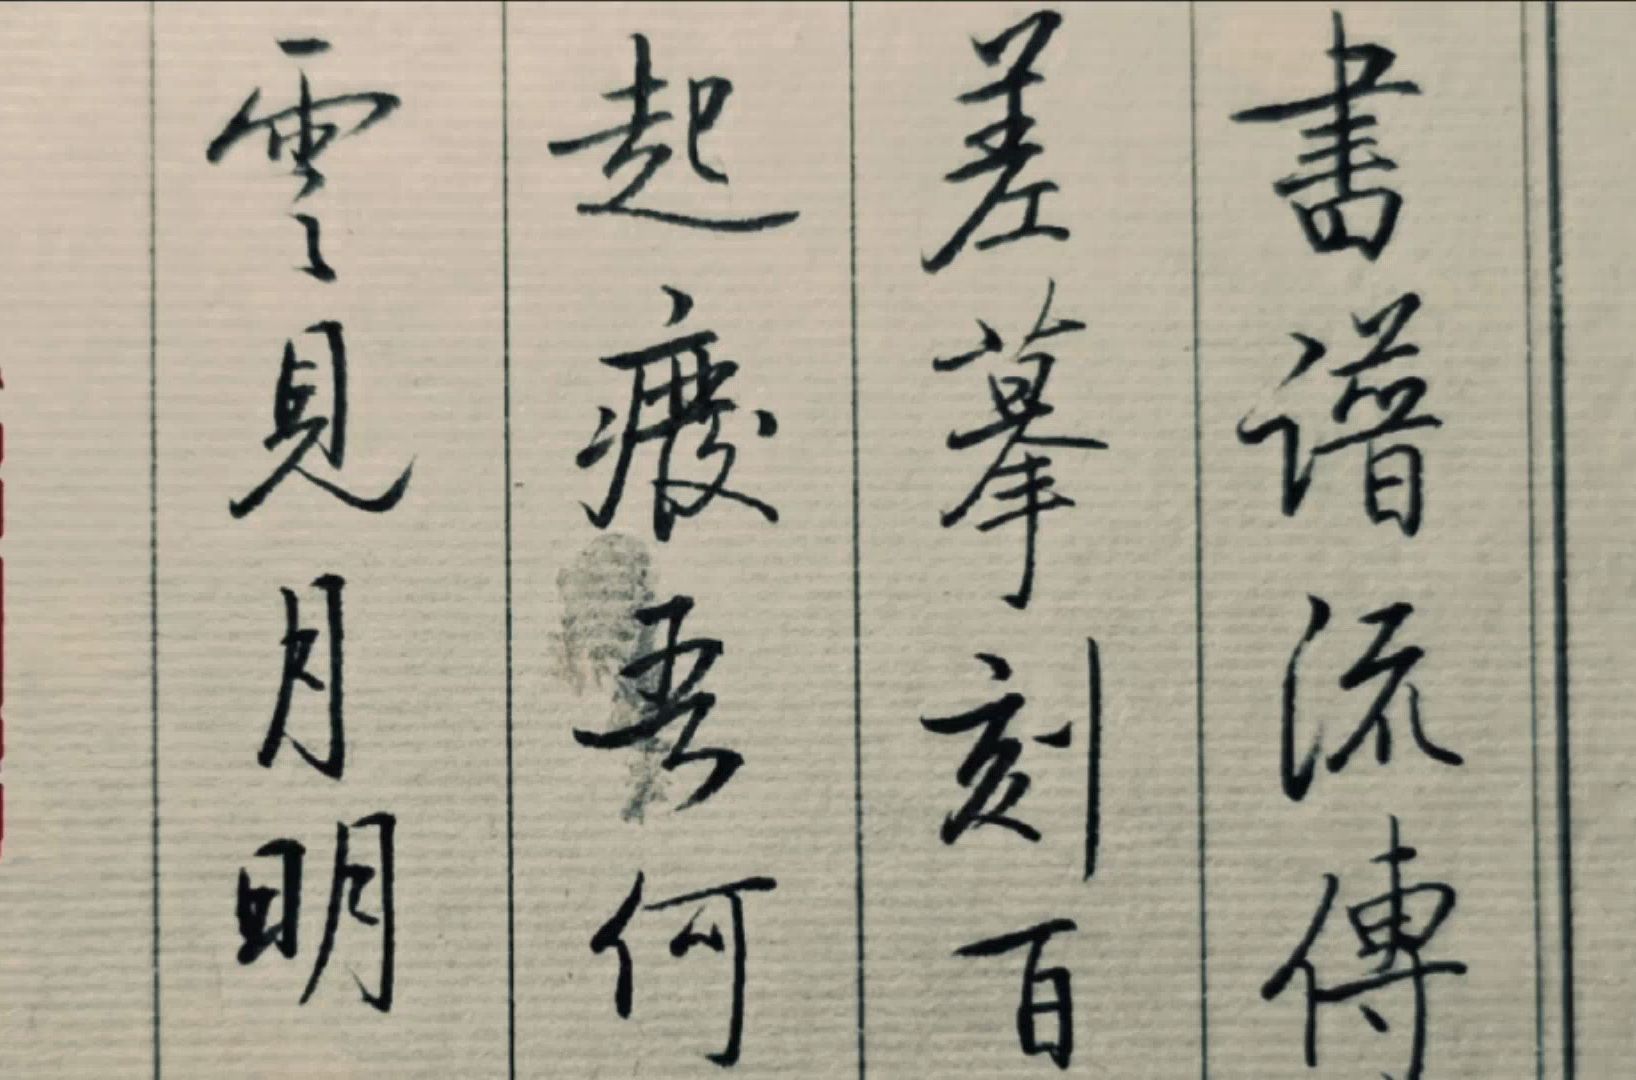 書譜流傳
差摹刻百
起癈吾何
雲見月明